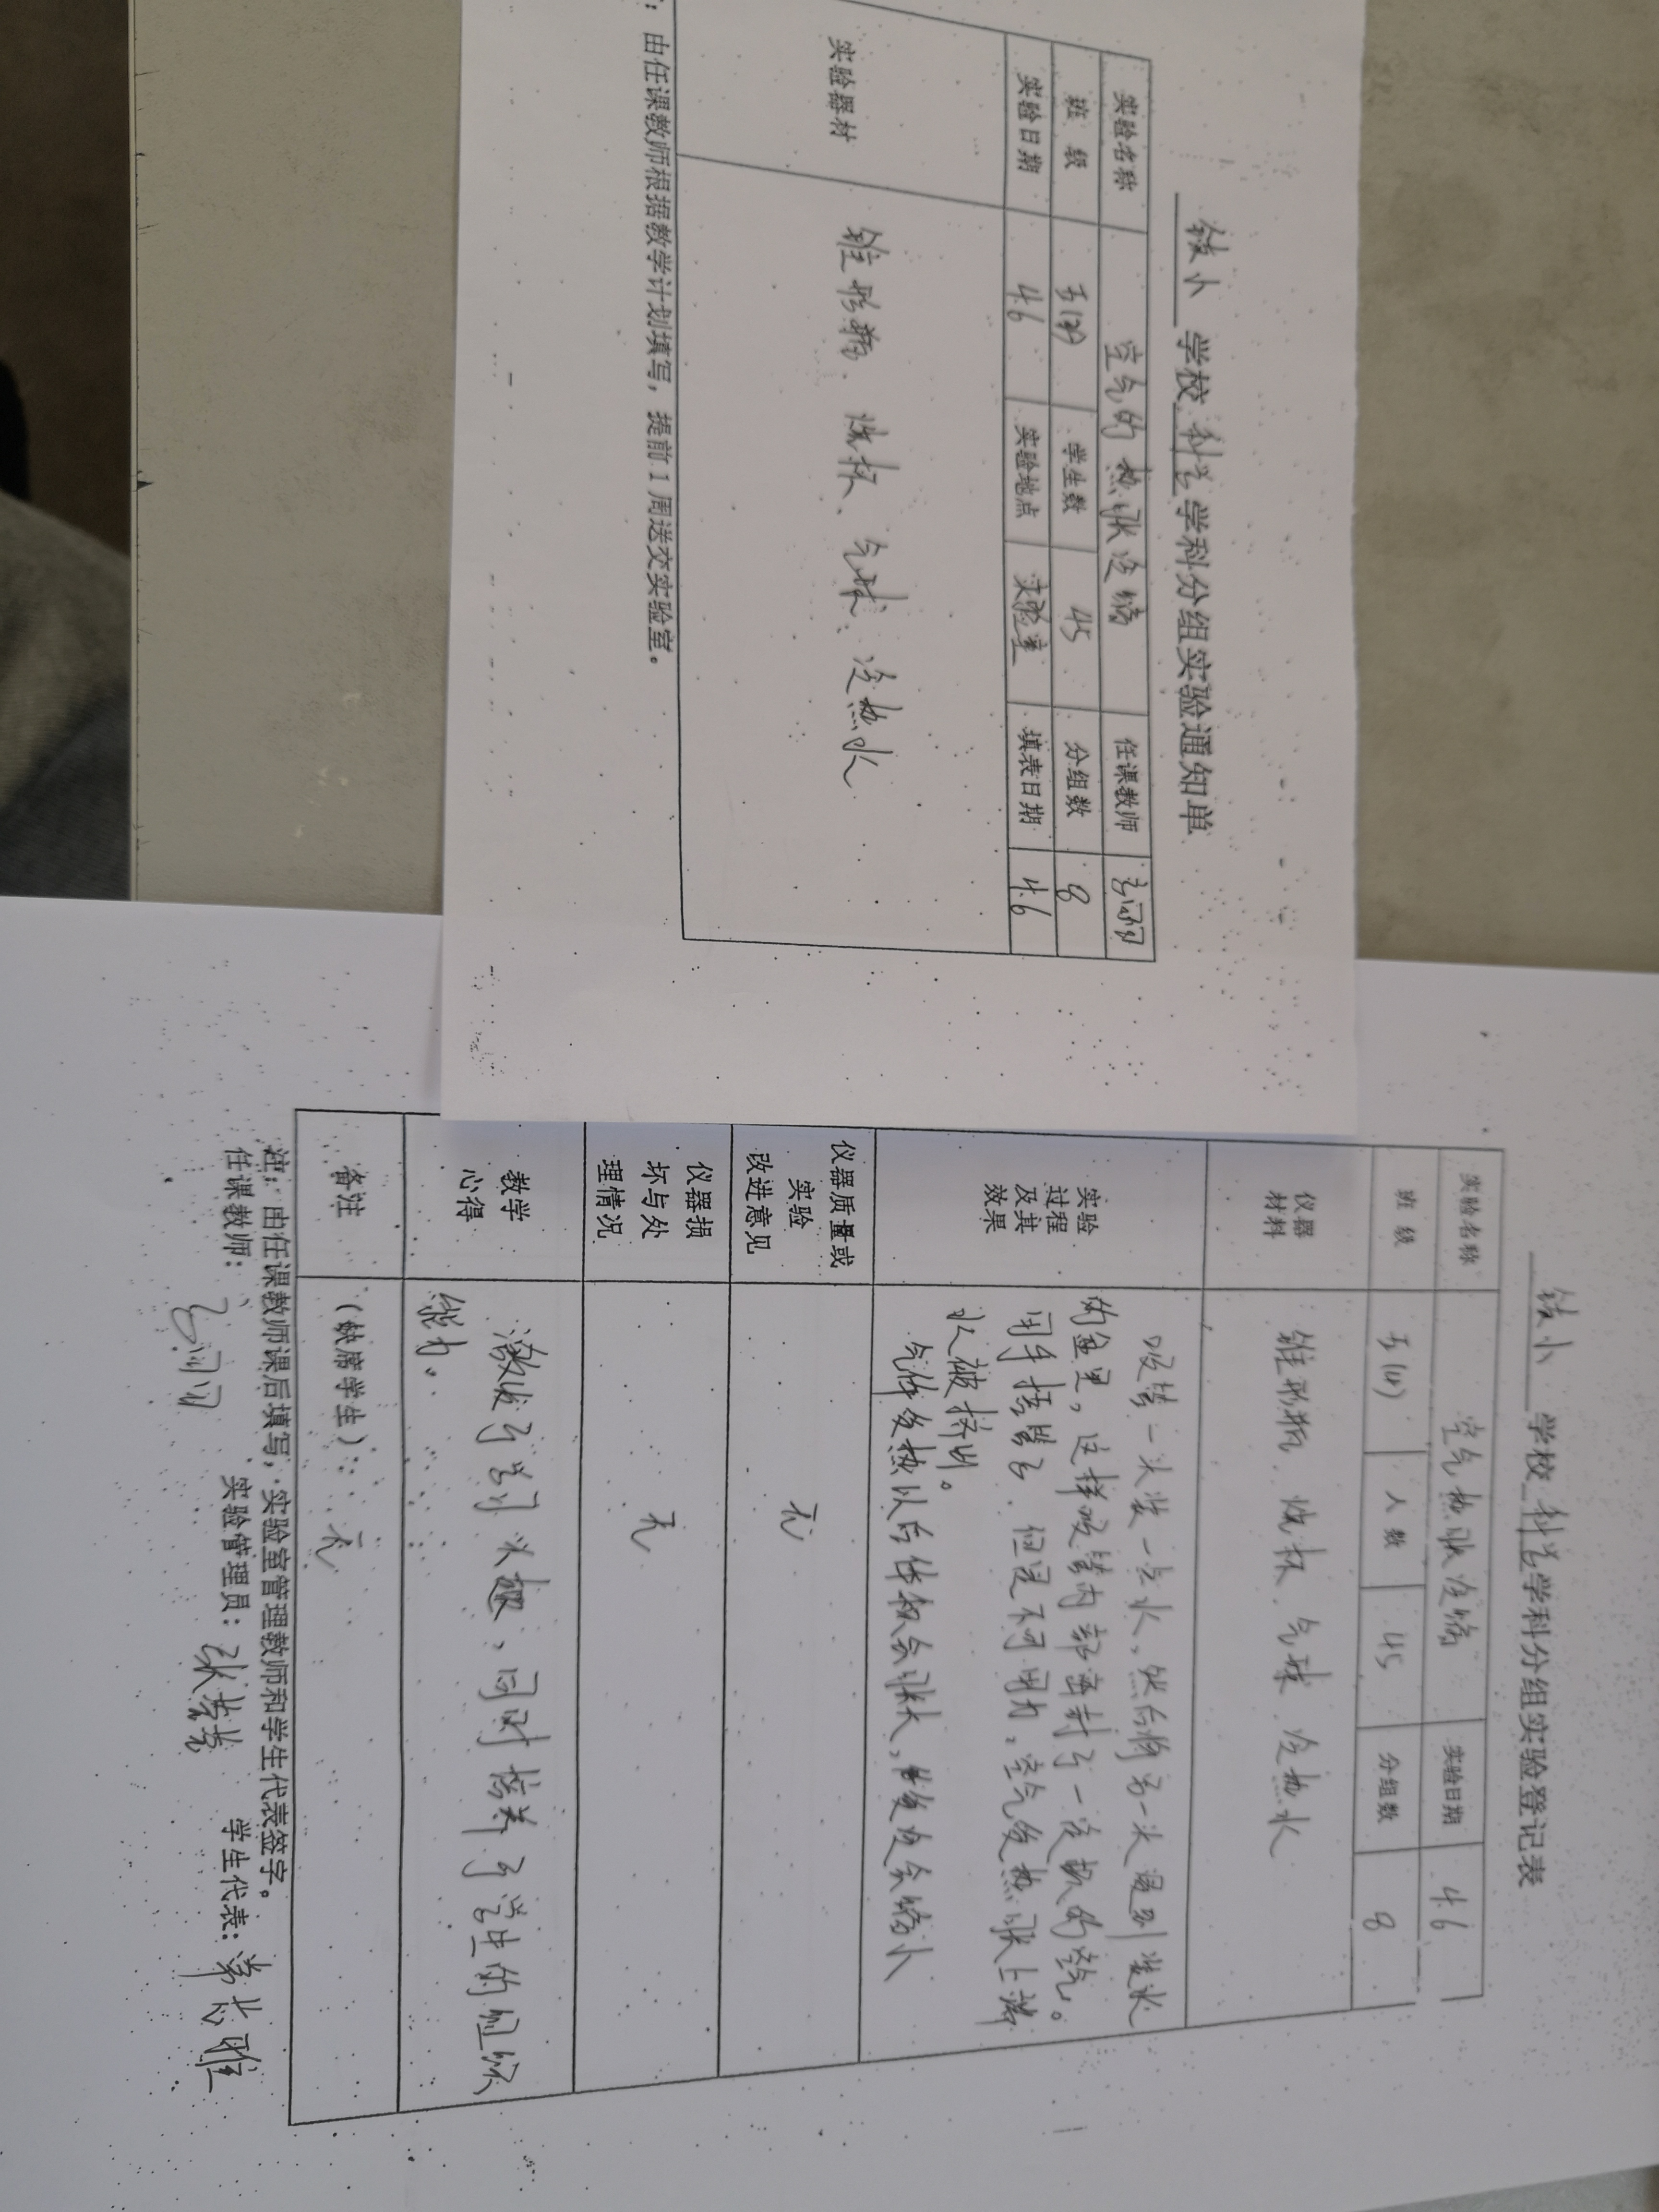 铁小 学校 科学 学科分组实验通知单
实验名称 空气的热胀冷缩 任课教师
班 级 学生数 45 分组数 8
实验日期 4.6 实验地点 实验室 填表日期 4.6
实验器材 锥形瓶、烧杯、气球、冷热水
：由任课教师根据教学计划填写，提前1周送交实验室。
铁小 学校 科学 学科分组实验登记表
实验名称 空气热胀冷缩 实验日期 4.6
班 级 五(4) 人 数 45 分组数 8
仪器材料 锥形瓶、烧杯、气球、冷热水
实验过程及其效果
吸管一头装一点水，然后将另一头 到装水
的盒里，这样吸管内部密封了一定 的空气。
用手捂管子，但是不可用力，空气受热胀上升
水被挤出。
气体受热以后体积会胀大， 会缩小
仪器质量或实验改进意见 无
仪器损坏与处理情况 无
教学心得 激发了学习兴趣，同时培养了学生的
能力。
备注 (缺席学生)：无
注：由任课教师课后填写，实验室管理教师和学生代表签字。
任课教师： 实验管理员：张 学生代表：